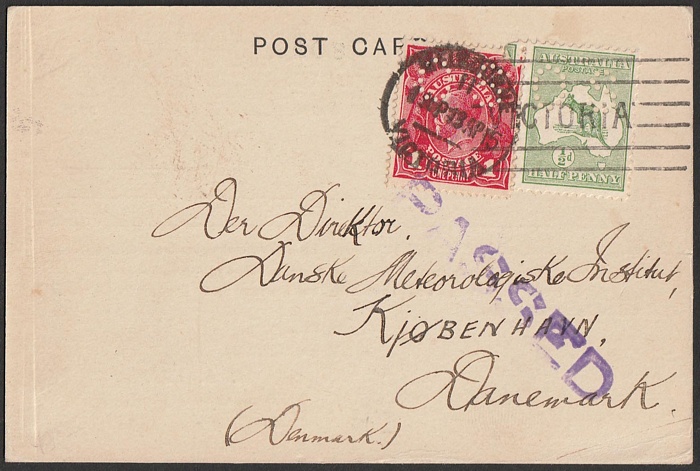 POST CAR
AUSTRALIA
POSTAGE
ONE PENNY
AUSTRALIA
POSTAGE
½d
HALFPENNY
VICTORIA
PASSED
Der Direktor.
Danske Meteorologiske Institut,
KJØBENHAVN,
Danemark.
(Denmark.)